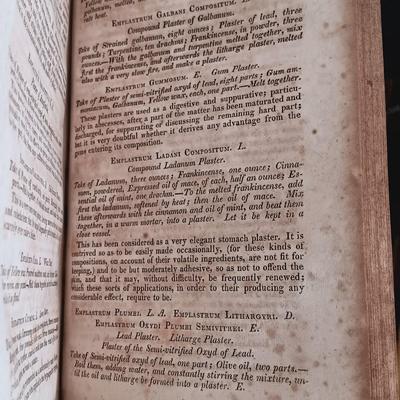 Yellow
galbanum, melted,
rate heat.
EMPLASTRUM GALBANI COMPOSITUM. L.
Compound Plaster of Galbanum.
Take of Strained galbanum, eight ounces; Plaster of lead, three
pounds; Turpentine, ten drachms; Frankincense, in powder, three
ounces.—With the galbanum and turpentine melted together, mix
first the frankincense, and afterwards the litharge plaster, melted
also with a very slow fire, and make a plaster.
EMPLASTRUM GUMMOSUM. E. Gum Plaster.
Take of Plaster of semi-vitrified oxyd of lead, eight parts; Gum am-
moniacum, Galbanum, Yellow wax, each, one part.—Melt together.
These plasters are used as a digestive and suppurative; particu-
larly in abscesses, after a part of the matter has been maturated and
discharged, for suppurating or discussing the remaining hard part;
but it is very doubtful whether it derives any advantage from the
gums entering its composition.
EMPLASTRUM LADANI COMPOSITUM. L.
Compound Ladanum Plaster.
Take of Ladanum, three ounces; Frankincense, one ounce; Cinna-
mon, powdered, Expressed oil of mace, of each, half an ounce; Es-
sential oil of mint, one drachm.—To the melted frankincense, add
first the ladanum, softened by heat; then the oil of mace. Mix
these afterwards with the cinnamon and oil of mint, and beat them
together, in a warm mortar, into a plaster. Let it be kept in a
close vessel.
This has been considered as a very elegant stomach plaster. It is
contrived so as to be easily made occasionally, (for these kinds of
compositions, on account of their volatile ingredients, are not fit for
keeping,) and to be but moderately adhesive, so as not to offend the
skin, and that it may, without difficulty, be frequently renewed;
which these sorts of applications, in order to their producing any
considerable effect, require to be.
EMPLASTRUM PLUMBI. L. A. EMPLASTRUM LITHARGYRI. D.
EMPLASTRUM OXYDI PLUMBI SEMIVITREI. E.
Lead Plaster. Litharge Plaster.
Plaster of the Semi-vitrified Oxyd of Lead.
Take of Semi-vitrified oxyd of lead, one part; Olive oil, two parts.—
Boil them, adding water, and constantly stirring the mixture, un-
til the oil and litharge be formed into a plaster. E.